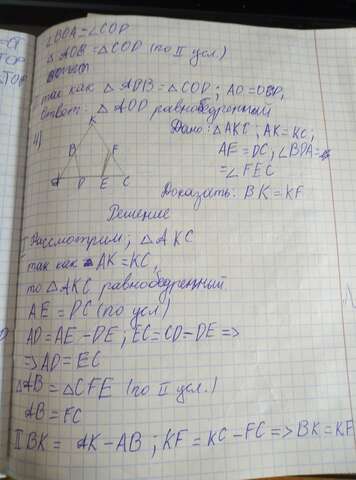 ∠BDA=∠COD
△AOB=△COD (по II усл.)
так как △ADB=△COD; AO=OD,
Ответ: △AOD равнобедренный
K
Дано: △AKC; AK=KC;
B
F
AE=DC, ∠BDA=
=∠FEC
A D E C
Доказать: BK=KF
Решение
I Рассмотрим; △AKC
так как AK=KC,
то △AKC равнобедренный
AE=DC (по усл)
AD=AE-DE; EC=CD-DE =>
=> AD=EC
△AB=△CFE (по II усл.)
AB=FC
II BK= AK-AB; KF=KC-FC => BK=KF